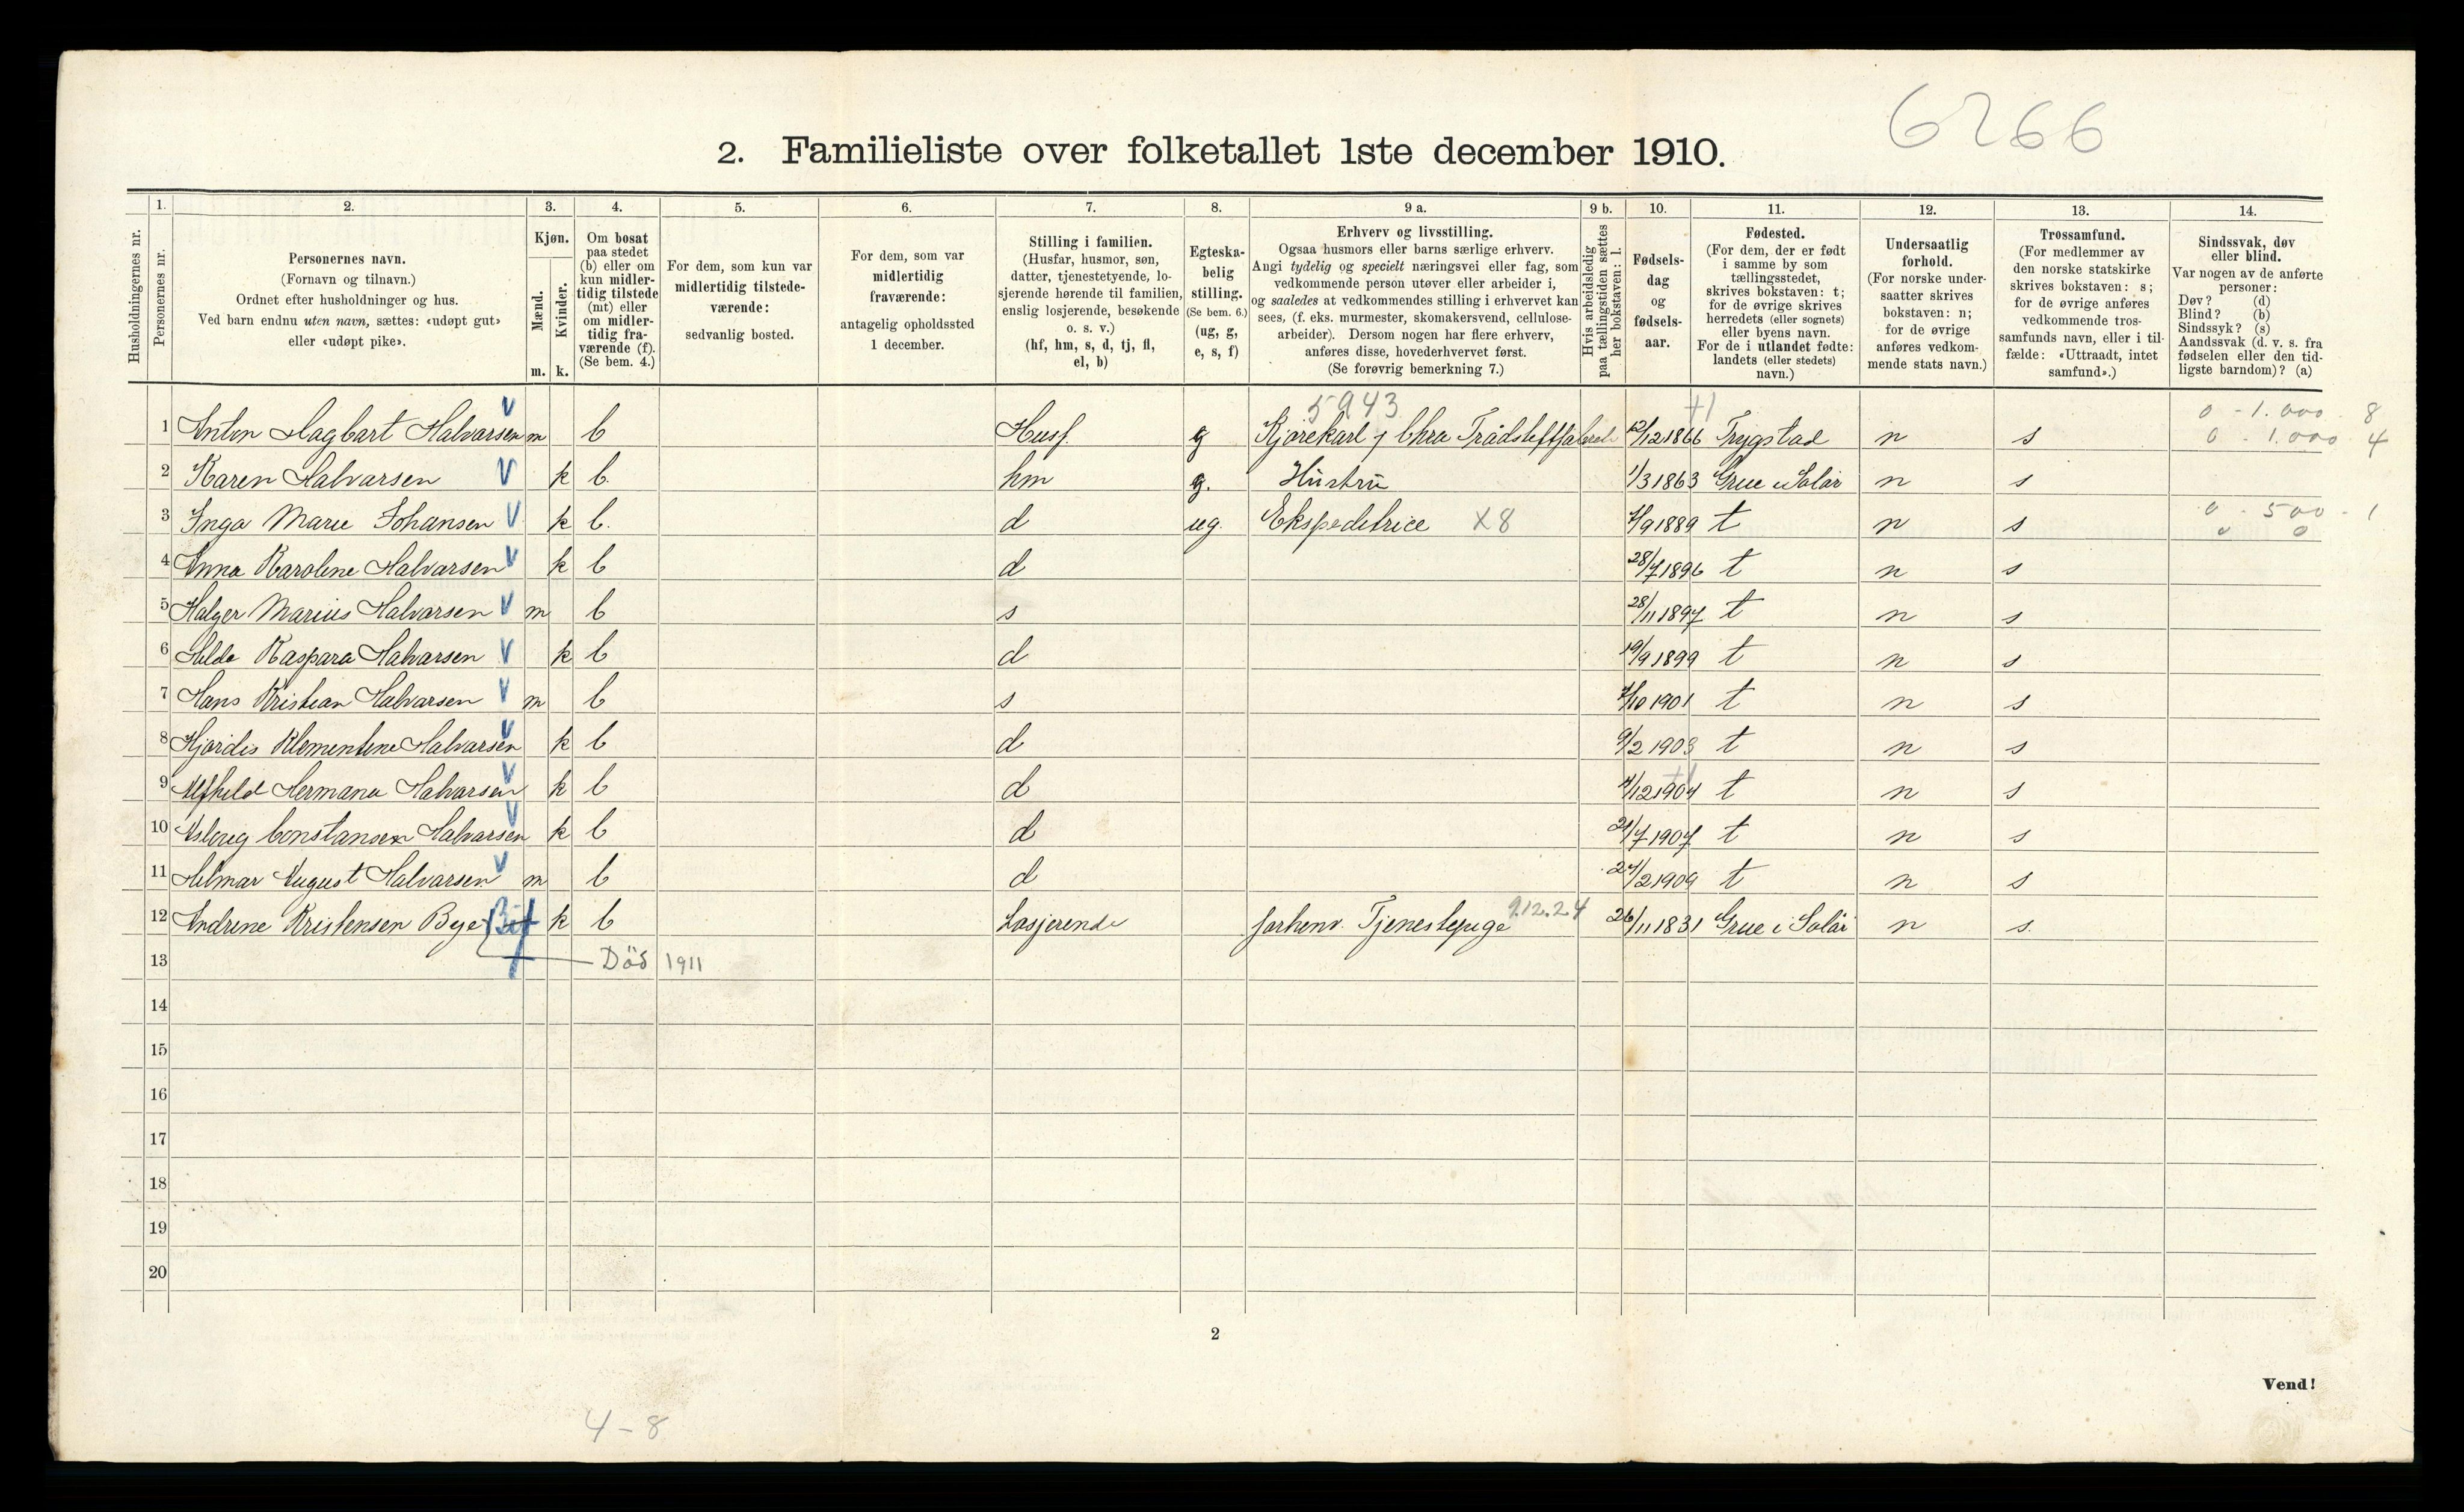 6266
2. Familieliste over folketallet 1ste december 1910.
1. 2. 3. 4. 5. 6. 7. 8. 9 a. 9 b. 10. 11. 12. 13. 14.
Husholdningernes nr.
Personernes nr.
Personernes navn.
(Fornavn og tilnavn.)
Ordnet efter husholdninger og hus.
Ved barn endnu uten navn, sættes: «udøpt gut»
eller «udøpt pike».
Kjøn.
Mænd.
m.
Kvinder.
k.
Om bosat
paa stedet
(b) eller om
kun midler-
tidig tilstede
(mt) eller
om midler-
tidig fra-
værende (f).
(Se bem. 4.)
For dem, som kun var
midlertidig tilstede-
værende:
sedvanlig bosted.
For dem, som var
midlertidig
fraværende:
antagelig opholdssted
1 december.
Stilling i familien.
(Husfar, husmor, søn,
datter, tjenestetyende, lo-
sjerende hørende til familien,
enslig losjerende, besøkende
o. s. v.)
(hf, hm, s, d, tj, fl,
el, b)
Egteska-
belig
stilling.
(Se bem. 6.)
(ug, g,
e, s, f)
Erhverv og livsstilling.
Ogsaa husmors eller barns særlige erhverv.
Angi tydelig og specielt næringsvei eller fag, som
vedkommende person utøver eller arbeider i,
og saaledes at vedkommendes stilling i erhvervet kan
sees, (f. eks. murmester, skomakersvend, cellulose-
arbeider). Dersom nogen har flere erhverv,
anføres disse, hovederhvervet først.
(Se forøvrig bemerkning 7.)
Hvis arbeidsledig
paa tællingstiden sættes
her bokstaven: l.
Fødsels-
dag
og
fødsels-
aar.
Fødested.
(For dem, der er født
i samme by som
tællingsstedet,
skrives bokstaven: t;
for de øvrige skrives
herredets (eller sognets)
eller byens navn.
For de i utlandet fødte:
landets (eller stedets)
navn.)
Undersaatlig
forhold.
(For norske under-
saatter skrives
bokstaven: n;
for de øvrige
anføres vedkom-
mende stats navn.)
Trossamfund.
(For medlemmer av
den norske statskirke
skrives bokstaven: s;
for de øvrige anføres
vedkommende tros-
samfunds navn, eller i til-
fælde: «Uttraadt, intet
samfund».)
Sindssvak, døv
eller blind.
Var nogen av de anførte
personer:
Døv? (d)
Blind? (b)
Sindssyk? (s)
Aandssvak (d. v. s. fra
fødselen eller den tid-
ligste barndom)? (a)
5943 0 - 1.000 8
1 Anton Hagbart Halvarsen m b Husf. g Kjørekarl 12/12 1866 Trygstad n s 0 - 1.000 4
2 Karen Halvarsen k b. hm g. Hustru 1/3 1863 Grue i Solør n s
3 Inga Marie Johansen k b. d ug. Ekspeditrice X8 1889 t n s 0 - 500 - 1
0 0
4 Anna Karoline Halvarsen k b d 28/7 1896 t n s
5 Holger Marius Halvarsen m b s 28/11 1897 t n s
6 Hilda Kaspara Halvarsen k b d 19/9 1899 t n s
7 Hans Kristian Halvarsen m b s 1901 t n s
8 Hjørdis Klementine Halvarsen k b d 9/2 1903 t n s
9 Alfhild Hermana Halvarsen k b d 1904 t n s
10 Aslaug Constanse Halvarsen k b d 1907 t n s
11 Hilmar August Halvarsen m b d 1909 t n s
12 Andrine Kristensen Bye k b Losjerende forhenv. Tjenestepige 9.12.24 26/11 1831 Grue i Solør n s.
13 Död 1911
14
15
16
17
18
19
20
2
Vend!
4-8